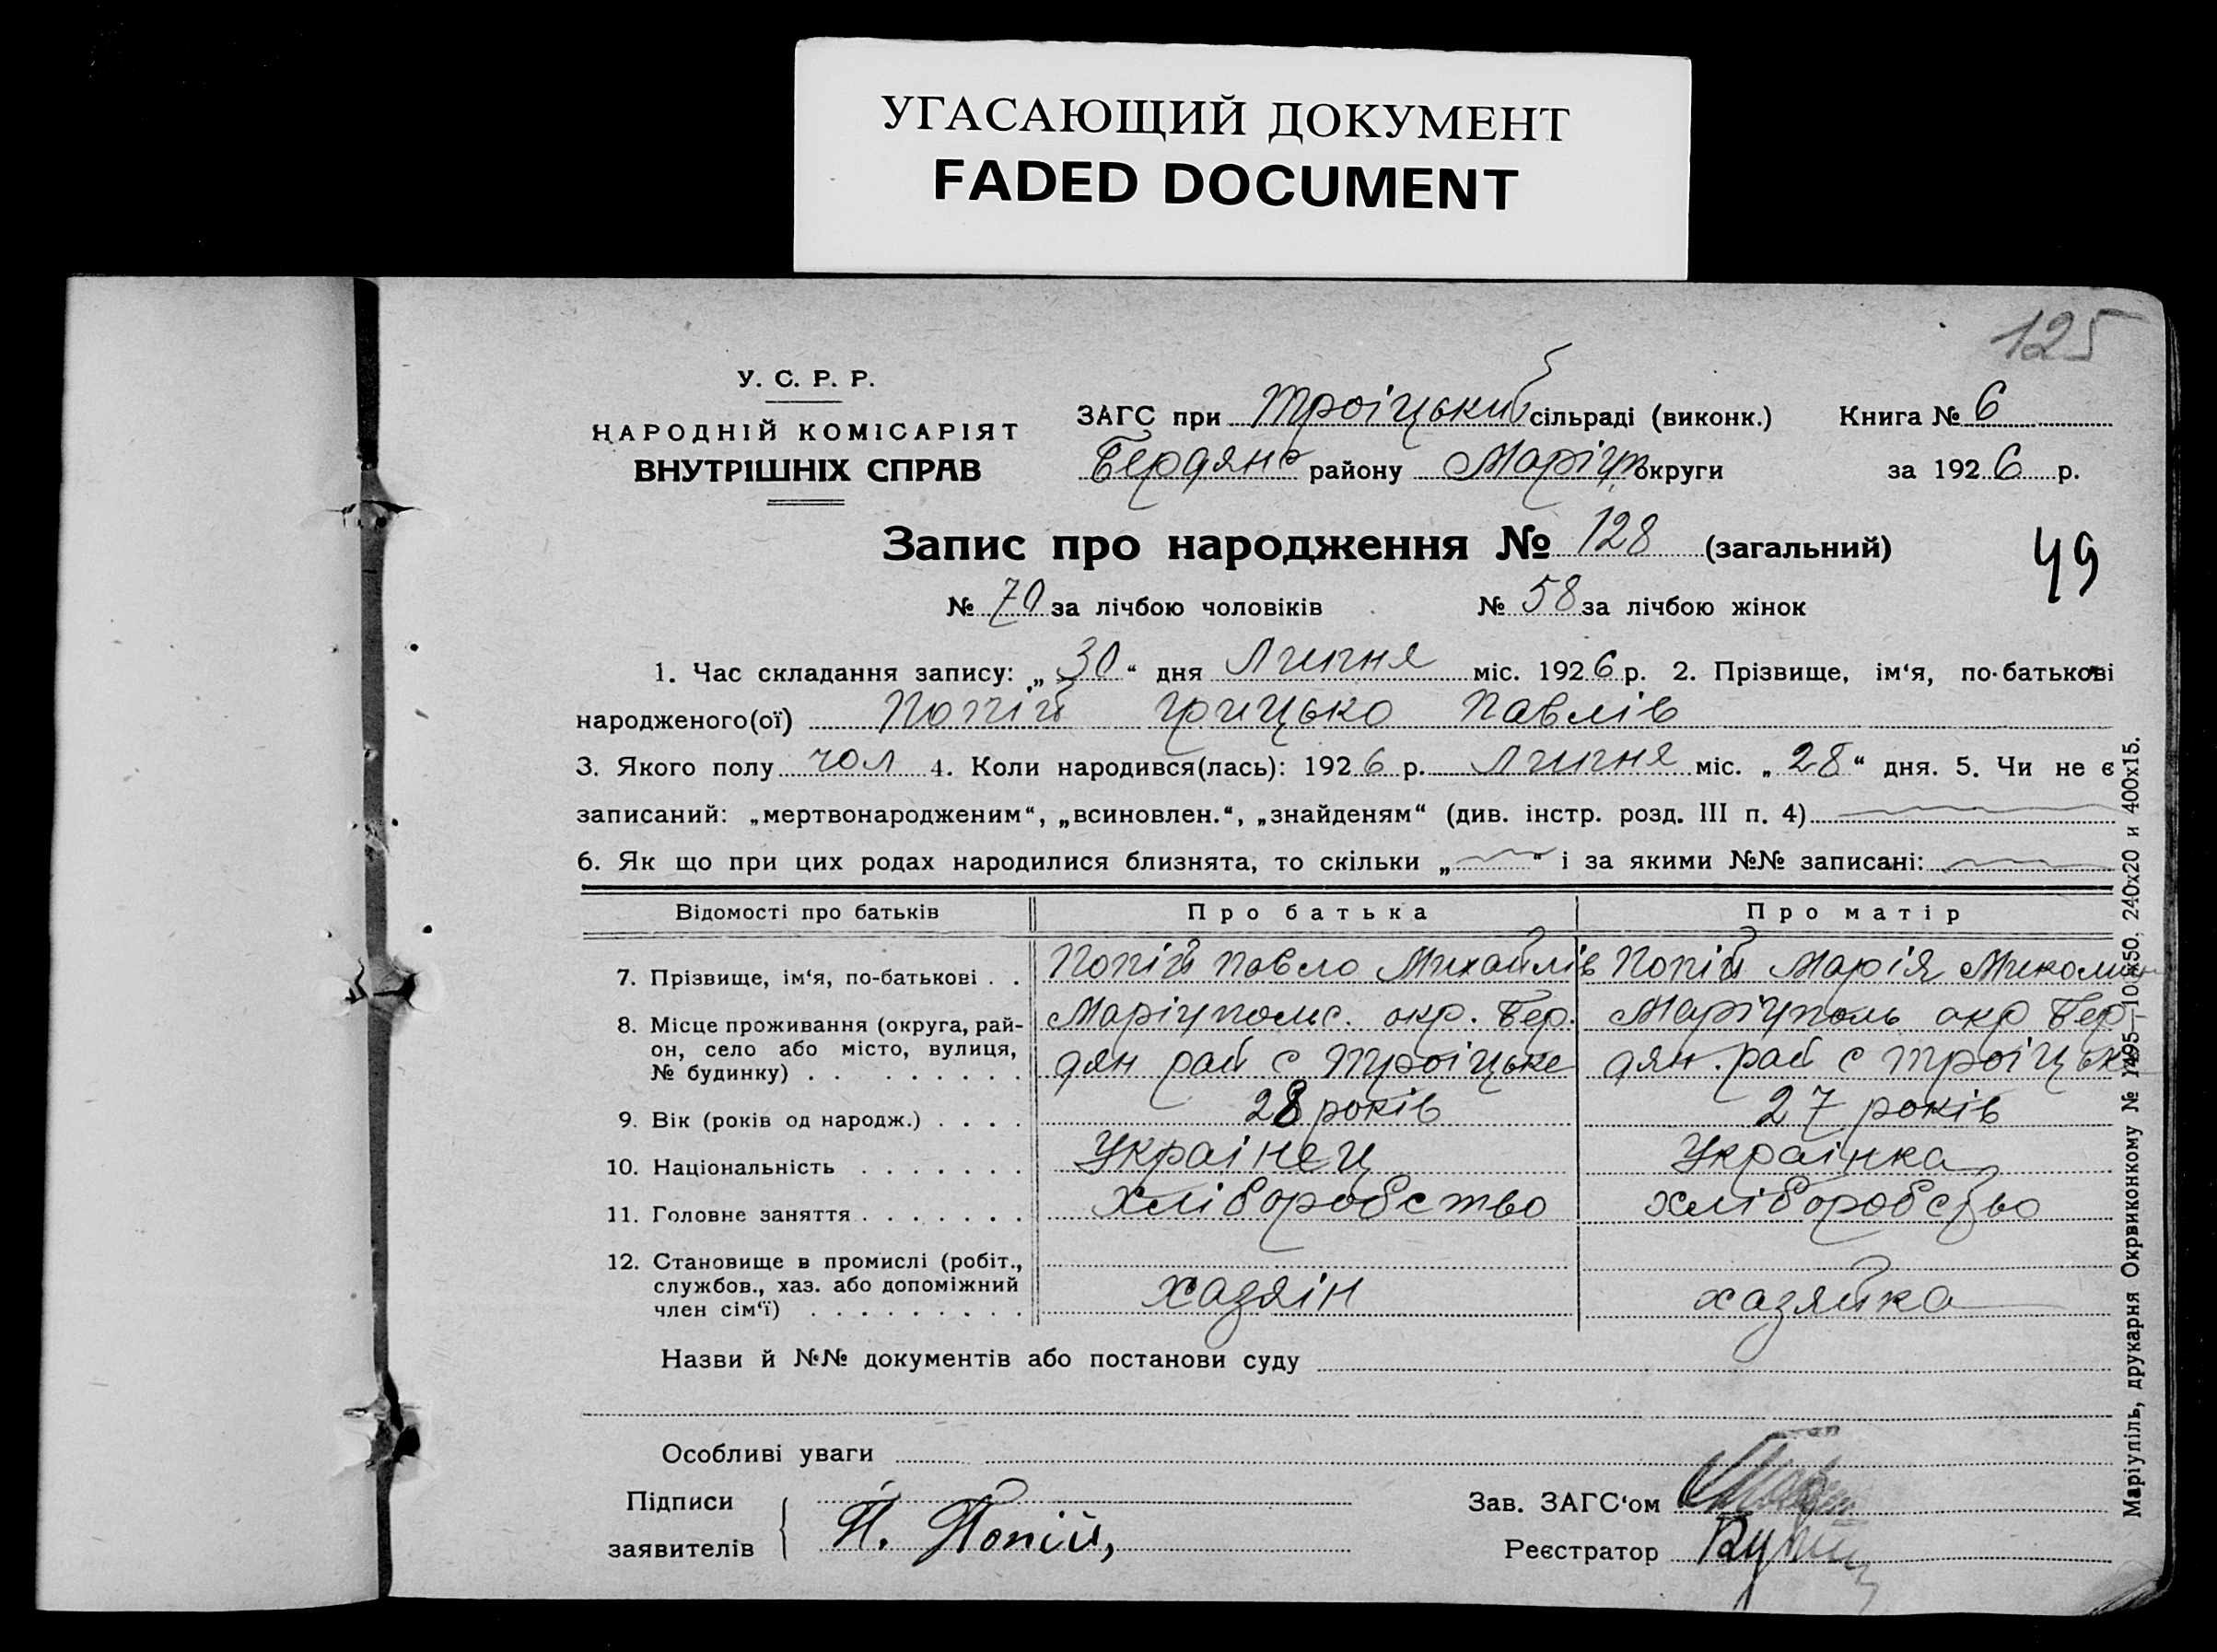 УГАСАЮЩИЙ ДОКУМЕНТ
FADED DOCUMENT
125
У. С. Р. Р.
НАРОДНІЙ КОМІСАРІЯТ
ВНУТРІШНІХ СПРАВ
ЗАГС при Троіцький сільраді (виконк.) Книга № 6
Бердянс району Маріуп округи за 1926 р.
Запис про народження № 128 (загальний)
49
№ 70 за лічбою чоловіків № 58 за лічбою жінок
1. Час складання запису: „30“ дня Липня міс. 1926 р. 2. Прізвище, ім‘я, по-батькові
народженого(ої) Попій Грицько Павлів
3. Якого полу чол 4. Коли народився(лась): 1926 р. Липня міс. „28“ дня. 5. Чи не є
записаний: „мертвонародженим“, „всиновлен.“, „знайденям“ (див. інстр. розд. III п. 4)
6. Як що при цих родах народилися близнята, то скільки „ “ і за якими №№ записані:
Відомості про батьків Про батька Про матір
7. Прізвище, ім‘я, по-батькові . . Попій Павло Михайлів Попій Марія
8. Місце проживання (округа, рай-он, село або місто, вулиця, № будинку) . . . . . . . . . Маріупольс. окр. Бер. Маріуполь окр Бер
дян рай с Троіцьке дян. рай с Троіцьке
9. Вік (років од народж.) . . . . 28 років 27 років
10. Національність . . . . . . . Украінец Украінка
11. Головне заняття . . . . . . . Хліборобство хліборобство
12. Становище в промислі (робіт.,
службов., хаз. або допоміжний
член сім‘ї) . . . . . . . . . хазяін хазяйка
Назви й №№ документів або постанови суду
Особливі уваги
Підписи
заявителів П. Попій,
Зав. ЗАГС‘ом
Реєстратор
Маріупіль, друкарня Окрвиконкому № 1495—10 х50. 240х20 и 400х15.